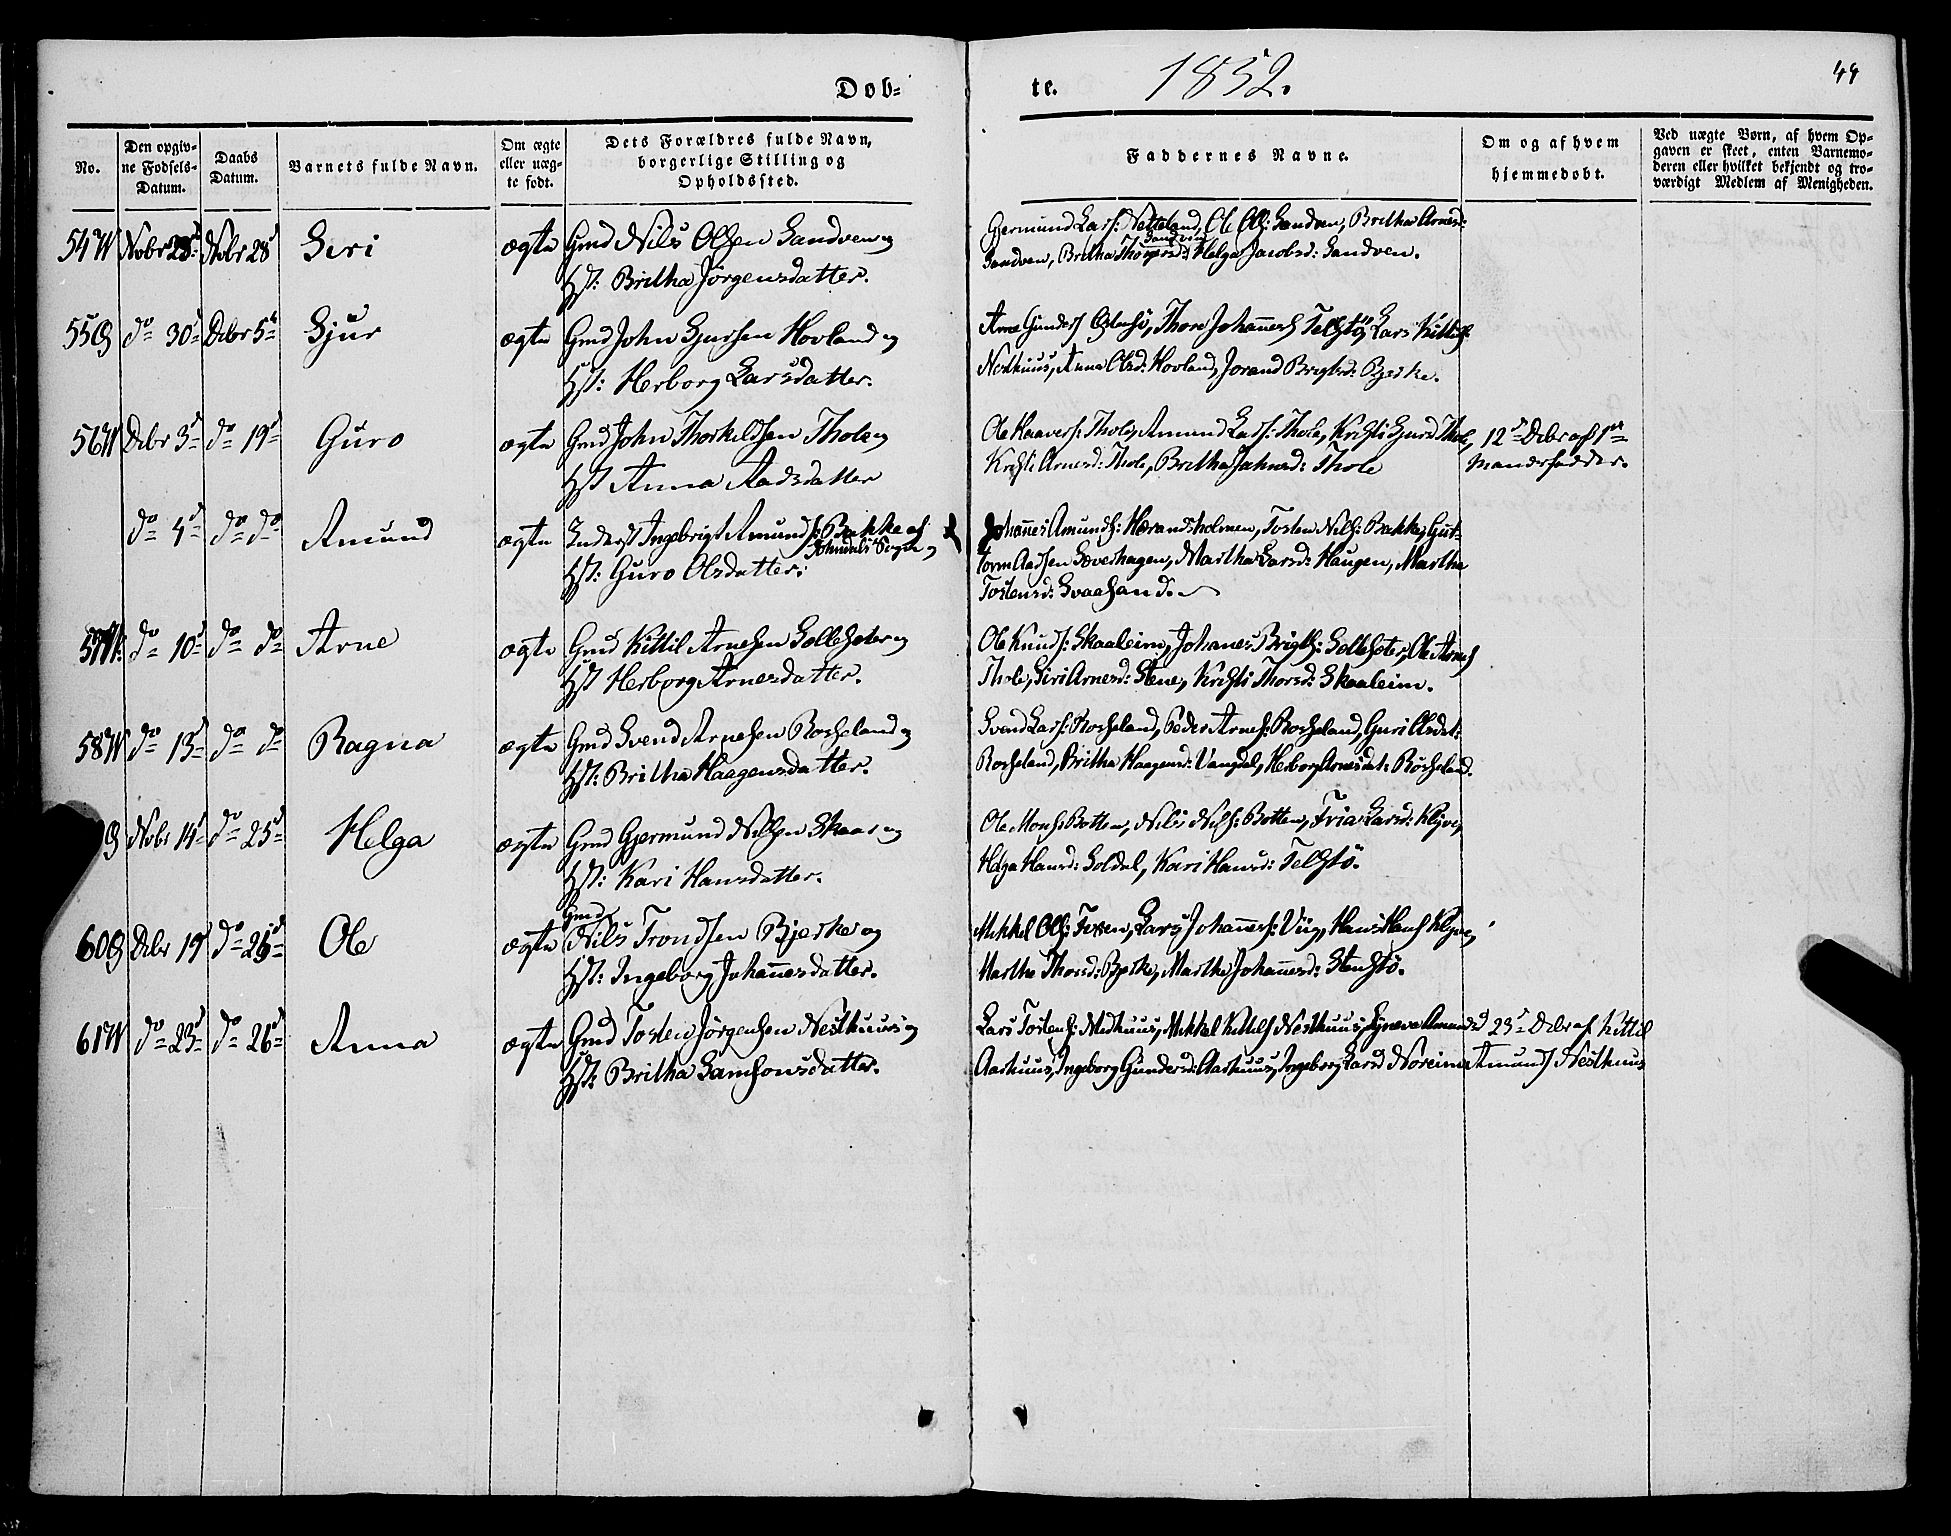 Døb-
te. 1852. 44
No.
Den opgiv-
ne Fødsels-
Datum.
Daabs
Datum.
Barnets fulde Navn.
Om ægte
eller uæg-
te født.
Dets Forældres fulde Navn,
borgerlige Stilling og
Opholdssted.
Faddernes Navne.
Om og af hvem
hjemmedøbt.
Ved uægte Børn, af hvem Op-
gaven er skeet, enten Barnemo-
deren eller hvilket bekjendt og tro-
værdigt Medlem af Menigheden.
54 Novbr Novbr 28 Siri ægte Gmd Nils Olsen Sandven og
Hst: Britha Jörgensdatter.
Gjermund Lars: Netteland, Ole Ols: Sandven, Britha Arnesd:
Sandven
Sandven, Britha Helga Jacobsd: Sandven.
55 do 30 Debr 5 Sjur ægte Gmd John Sjursen Hovland og
Hst: Herborg Larsdatter.
Arne Gunders Thore Johannes Telstö, Lars Kittils:
Nesthuus, Anna Olsd: Hovland, Jorand Bjerke.
56 Debr 3 do 19 Guro ægte Gmd John Thorkildsen Thole og
Hst Anna Aadsdatter
Ole Haavers: Thole, Amund Lars: Thole, Kristi Sjursd Thole,
Kristi Arnesd: Thole, Britha Johnsd: Thole
12 Debr af 1
Mandsfadder.
do 4 do do Amund ægte Inderst Ingebrigt Amunds: Bakke af
Hst: Guro Olsdatter.
Johannes Amunds: Tosten Nils: Bakke, Gut-
torm Aadsen Martha Larsd: Haugen, Martha
Tostensd: Svaasand.
57 do 10 do do Arne ægte Gmd Kittil Arnesen Sollesæter og
Hst Herborg Arnesdatter.
Ole Knuds: Skaaleim, Johannes Brigts: Sollesæter, Ole Arnes
Thole, Siri Arnesd: Stene, Kristi Thorsd: Skaaleim.
58 do 13 do do Ragna ægte Gmd Svend Arnesen Rosseland og
Hst: Britha Haagensdatter.
Svend Lars: Rosseland, Peder Arnes: Rosseland, Guri Olsdat:
Rosseland, Britha Haagensd: Vangdal, Herborg Arnesdat: Rosseland.
Novbr 14 do 25 Helga ægte Gmd Gjermund Nilsen Skaar og
Hst: Kari Hansdatter.
Ole Mons: Botten, Nils Nils: Botten, Larsd: Klyve,
Helga Hansd: Soldal, Kari Hansd: Telstö.
60 Debr 19 do 26 Ole ægte
Gmd
Nils Trondsen Bjerke og
Hst: Ingeborg Johannesdatter.
Mikkel Ols: Lars Johannes: Viig, Hans Hans Klyve,
Martha Thorsd: Bjerke, Martha Johannesd: Stenstö.
61 do 23 do 26 Anna ægte Gmd Tosten Jörgensen Nesthuus og
Hst: Britha Samsonsdatter.
Lars Tostens: Nesthuus, Mikkel Kittils Nesthuus, Synneva Amundsd
Aarhuus, Ingeborg Gundersd: Aarhuus, Ingeborg Larsd Noreim
23 Debr af Kittil
Amunds Nesthuus